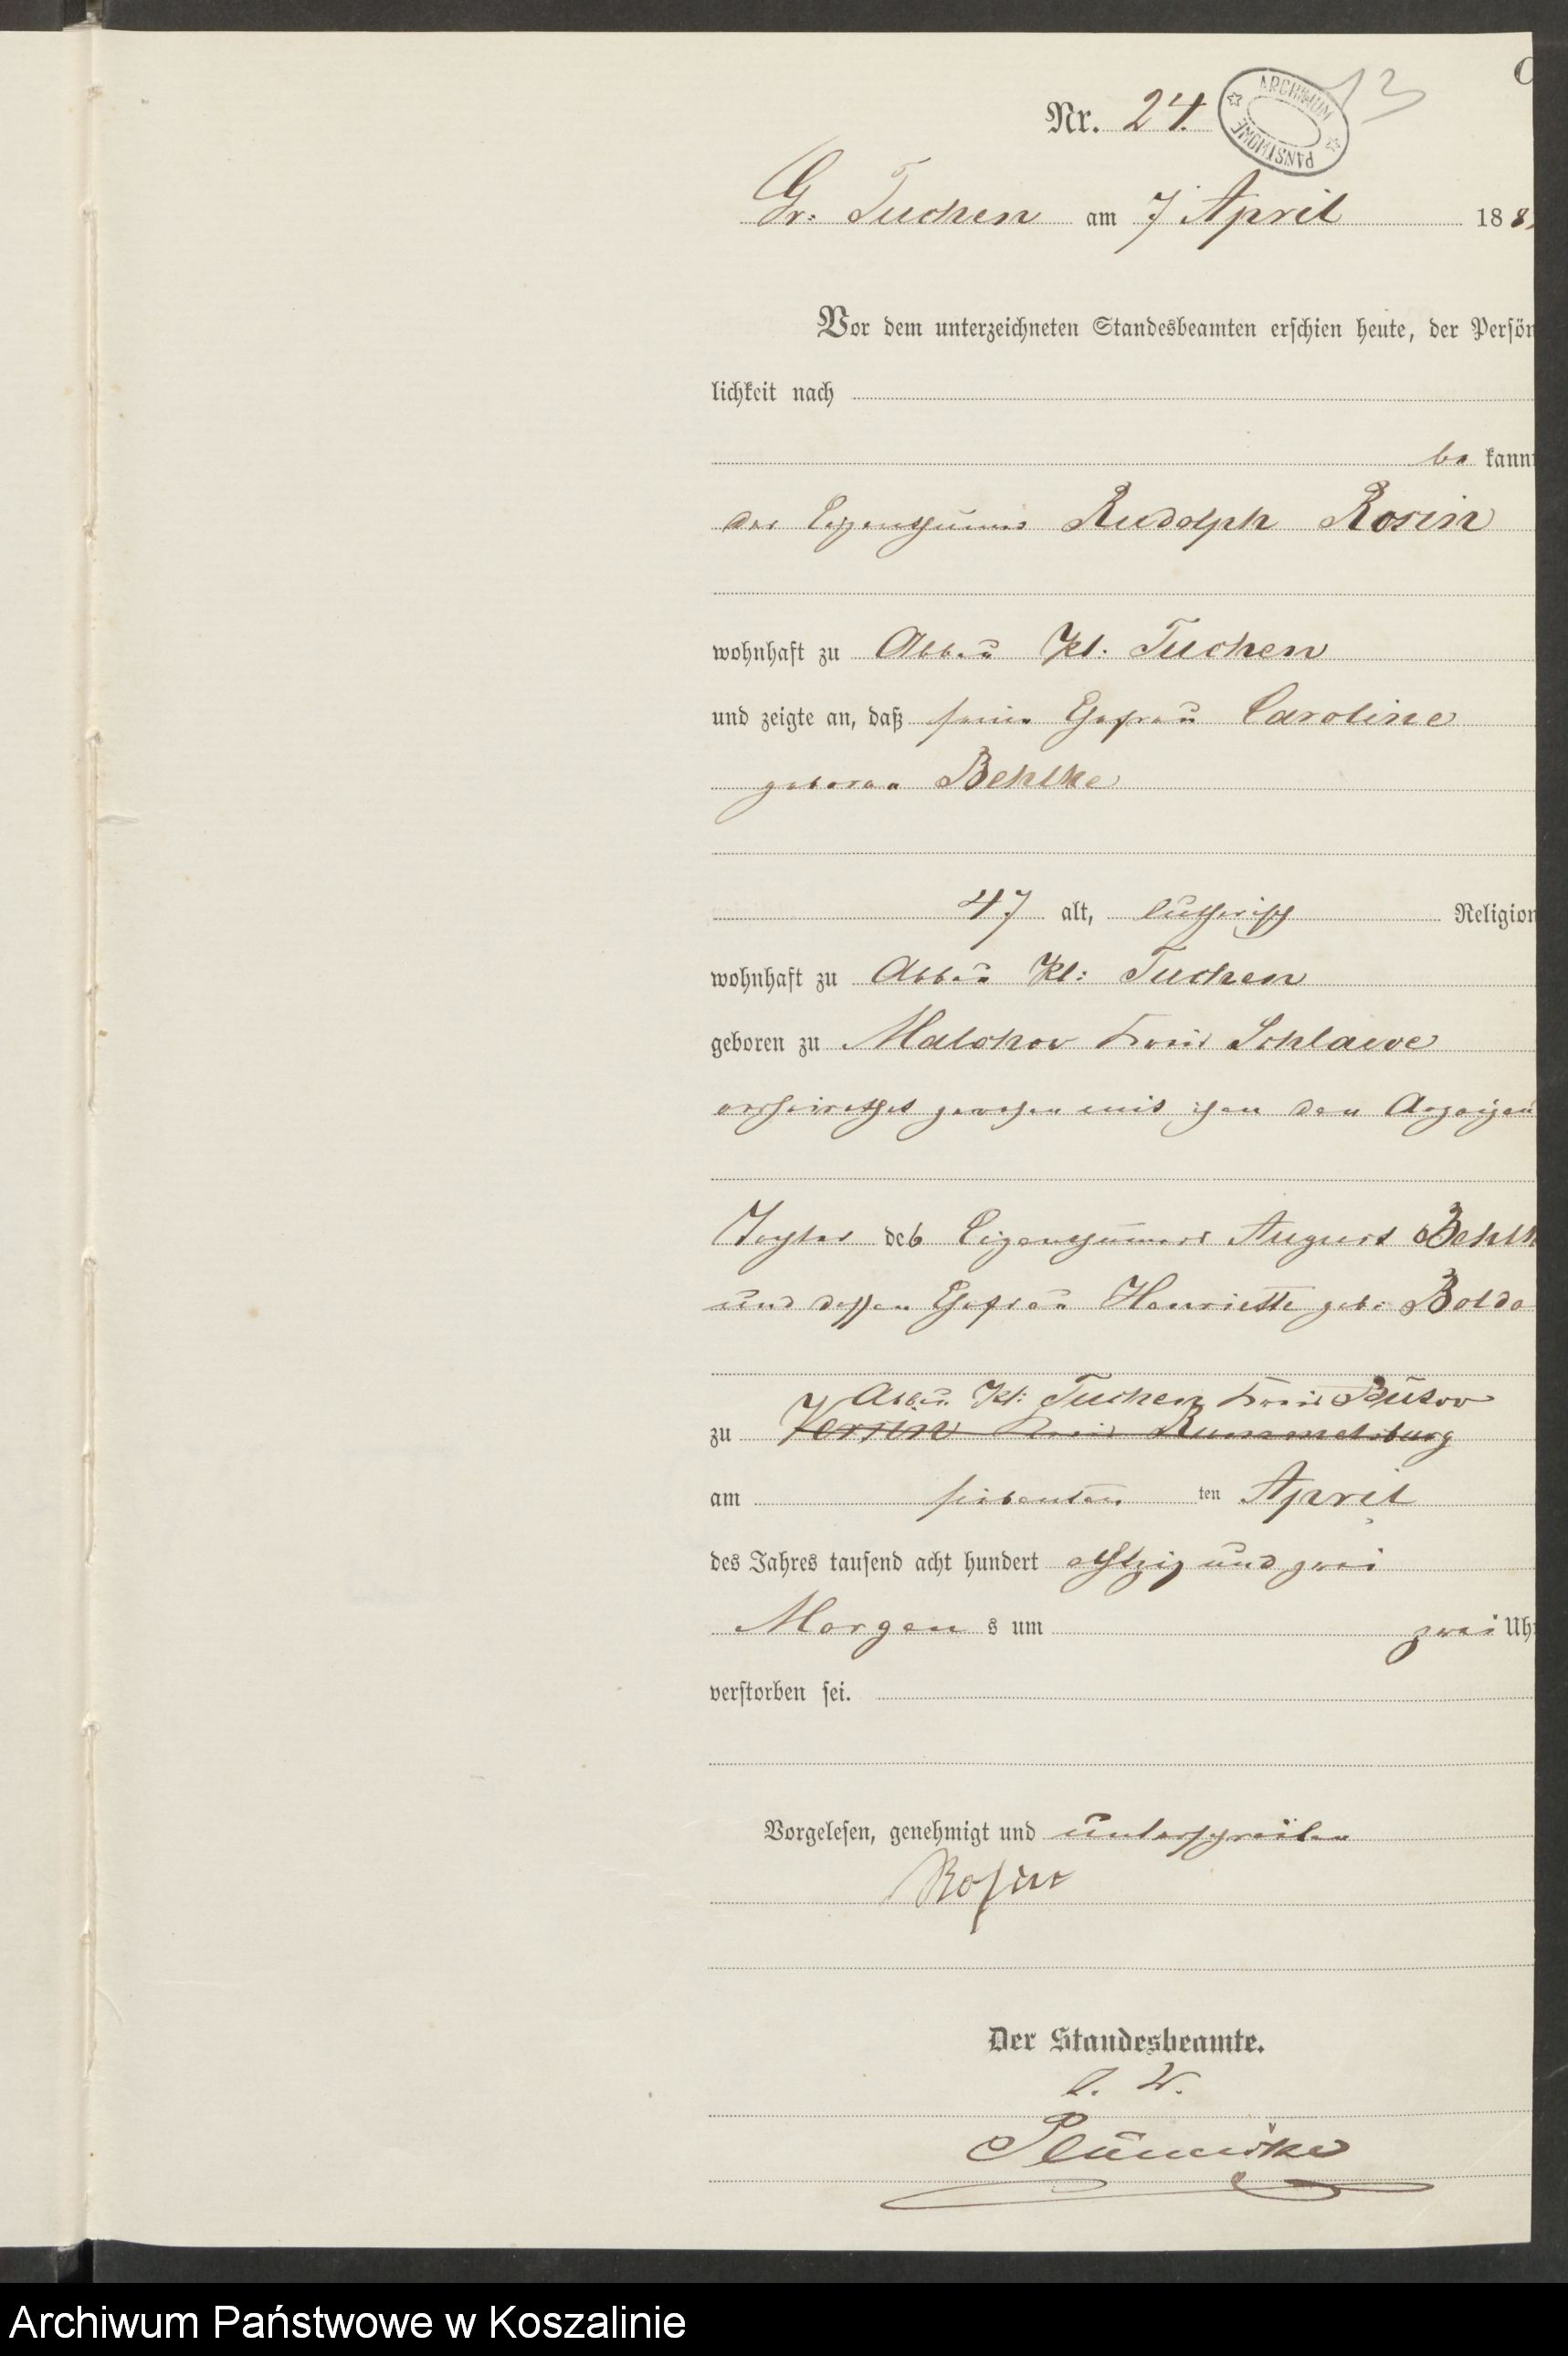 C
Nr. 24.
ARCHIWUM PAŃSTWOWE
13
Gr. Tuchen am 7 April 188
Vor dem unterzeichneten Standesbeamten erschien heute, der Persön
lichkeit nach
be kannt
der Eigenthümer Rudolph Rosin
wohnhaft zu Abbau Kl. Tuchen
und zeigte an, daß seine Ehefrau Caroline
geborene Behlke
47 alt, lutherisch Religion
wohnhaft zu Abbau Kl: Tuchen
geboren zu Malchow Kreis Schlawe
verheirathet gewesen mit ihm dem Anzeigen
Tochter des Eigenthümers August Behlk
und dessen Ehefrau Henriette geb: Bolda
Abbau Kl: Tuchen Kreis Bütow
zu Versin Kreis Rummelsburg
am siebenten ten April
des Jahres tausend acht hundert achtzig und zwei
Morgen s um zwei Uhr
verstorben sei.
Vorgelesen, genehmigt und unterschrieben
Rosin
Der Standesbeamte.
Plümicke
Archiwum Państwowe w Koszalinie